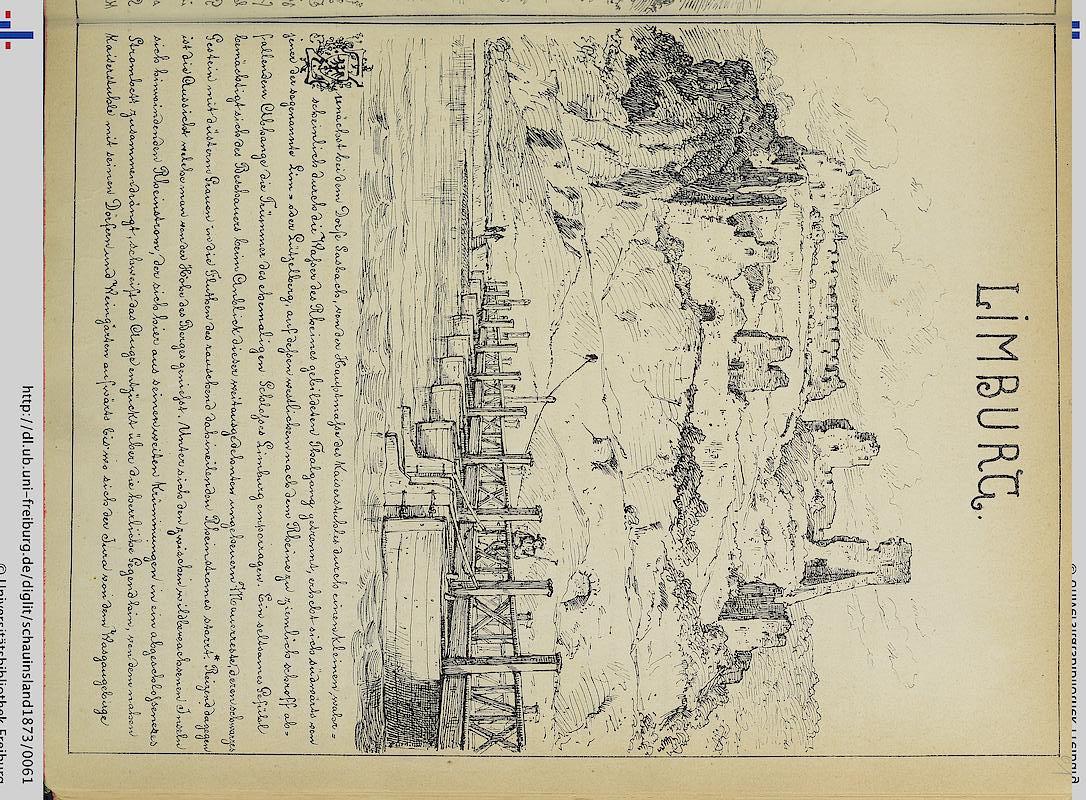 LIMBURG.
unächst bei dem Dorfe Sasbach, von der Hauptmasse des Kaiserstuhles durch einen kleinen wahr=
scheinlich durch die Wasser des Rheines gebildeten Thalgang getrennt, erhebt sich südwärts von
jener der sogenannte Lim= oder Lützelberg, auf deßen westlichem nach dem Rheine zu ziemlich schroff ab=
fallendem Abhange die Trümmer des ehemaligen Schloßes Limburg emporragen. Ein seltsames Gefühl
bemächtigt sich des Beschauers beim Anblick dieser weitausgedehnten ungeheuern Mauerreste, deren schwarzes
Gestein mit düsterm Grauen in die Fluthen des rauschend dahineilenden Rheinstromes starrt.* Reizend dagegen
ist die Aussicht welche man von der Höhe des Berges genießt. Unter sich den zwischen wildbewachsenen Inseln
sich hinwindenden Rheinstrom, der sich hier aus seinen weiten Krümmungen in ein abgeschloßenes
Strombett zusammendrängt, schweift das Auge entzückt über die herrliche Gegend hin, von dem nahen
Kaiserstuhle mit seinen Dörfern und Weingärten aufwärts bis wo sich der Jura von dem Wasgaugebirge
http://dl.ub.uni-freiburg.de/diglit/schauinsland1873/0061
© Universitätsbibliothek Freiburg